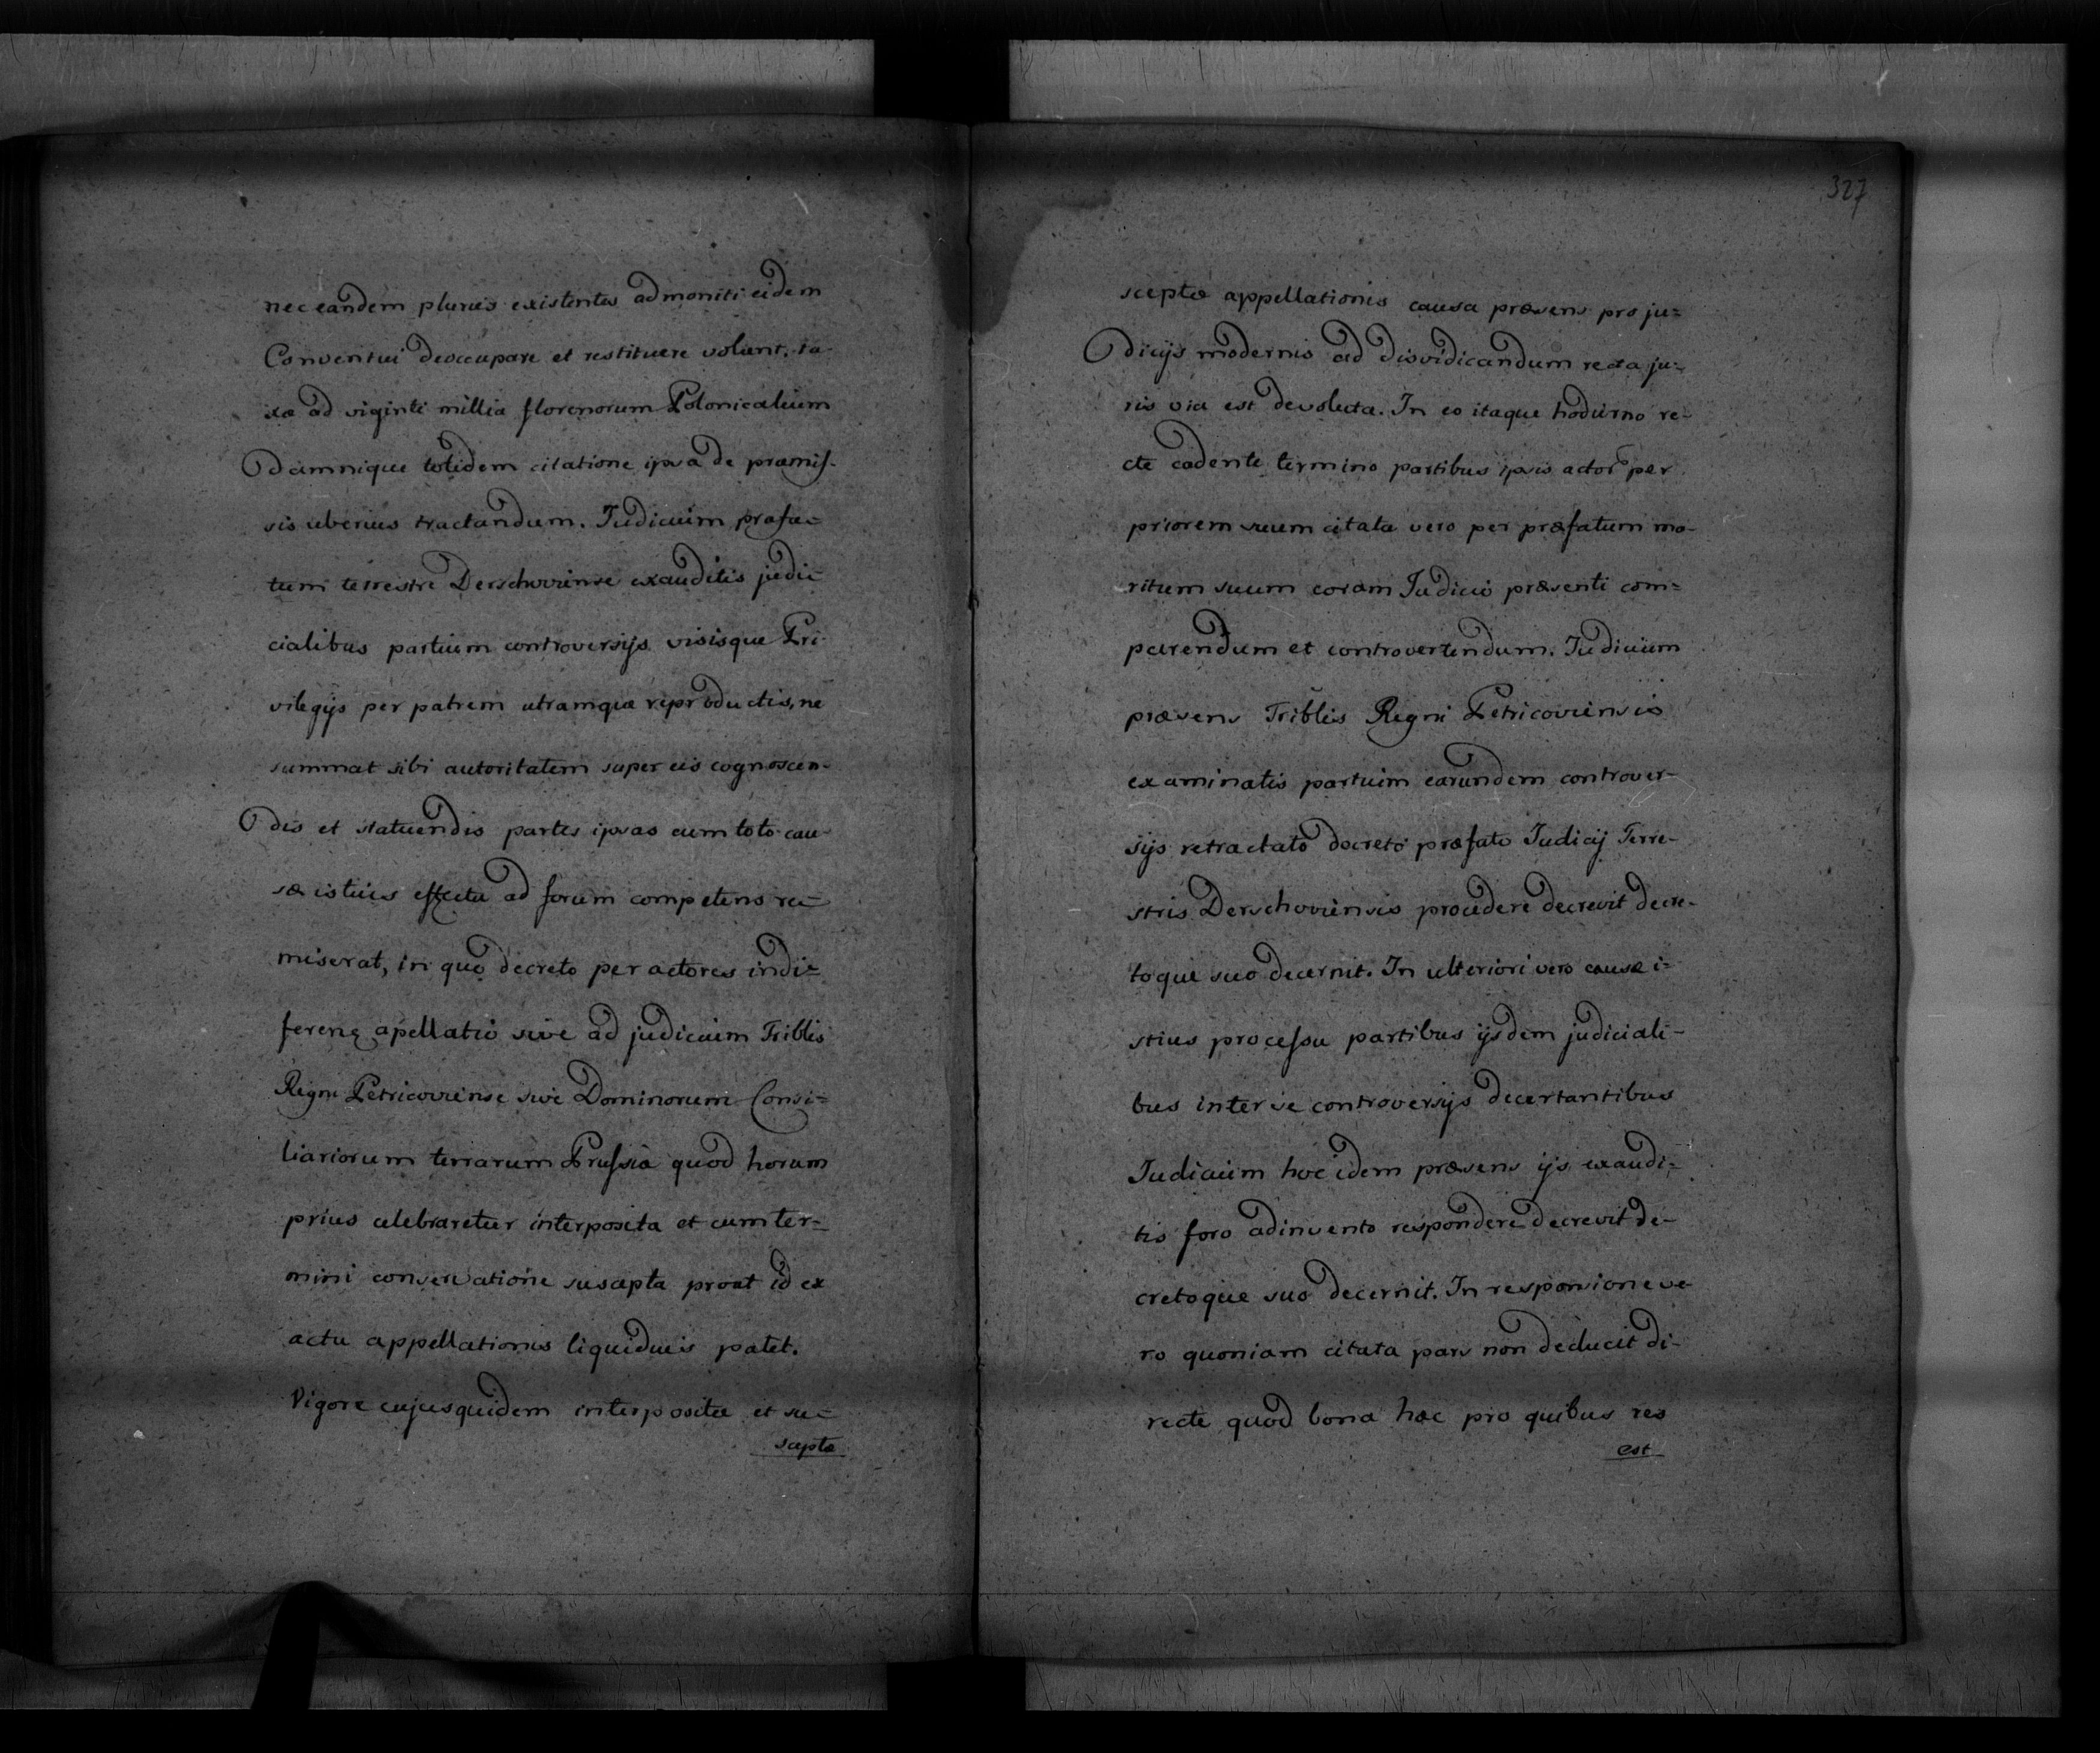 nec eandem pluries existentes admoniti eidem
Conventui deoccupare et restituere volunt. ta-
xæ ad viginti millia florenorum Polonicalium
damnique totidem citatione ipsa de præmis-
sis uberius tractandum. Iudicium præfa-
tum terrestre Derschoviense exauditis judi-
cialibus partium controversijs visisque Pri-
vilegijs per patrem utramque reproductis, ne
summat sibi autoritatem super eis cognoscen-
dis et statuendis partes ipsas cum toto cau-
sæ istius effectu ad forum competens re-
miserat, in quo decreto per actores indi-
ferenę apellatio sive ad judicium Triblis
Regni Petricoviense sive Dominorum Consi-
liariorum terrarum Prussiæ quod horum
prius celebraretur interposita et cum ter-
mini conservatione suscepta prout id ex
actu appellationis liquidius patet.
Vigore cujusquidem interpositæ et su-
sceptæ
327
sceptæ appellationis causa præsens pro ju-
dicijs modernis ad disvidicandum recta ju-
ris via est devoluta. In eo itaque hodierno re-
cte cadente termino partibus ipsis actor per
priorem suum citata vero per præfatum ma-
ritum suum coram Iudicio præsenti com-
parendum et controvertendum. Iudicium
præsens Triblis Regni Petricoviensis
examinatis partium earundem controver-
sijs retractato decreto præfato Iudicij Terre-
stris Derschoviensis procedere decrevit decre-
toque suo decernit. In ulteriori vero causæ i-
stius processu partibus ijsdem judiciali-
bus inter se controversijs decertantibus
Iudicium hoc idem præsens ijs exaudi-
tis foro adinvento respondere decrevit de-
cretoque suo decernit. In responsione ve
ro quoniam citata pars non deducit di-
recte quod bona hæc pro quibus res
est